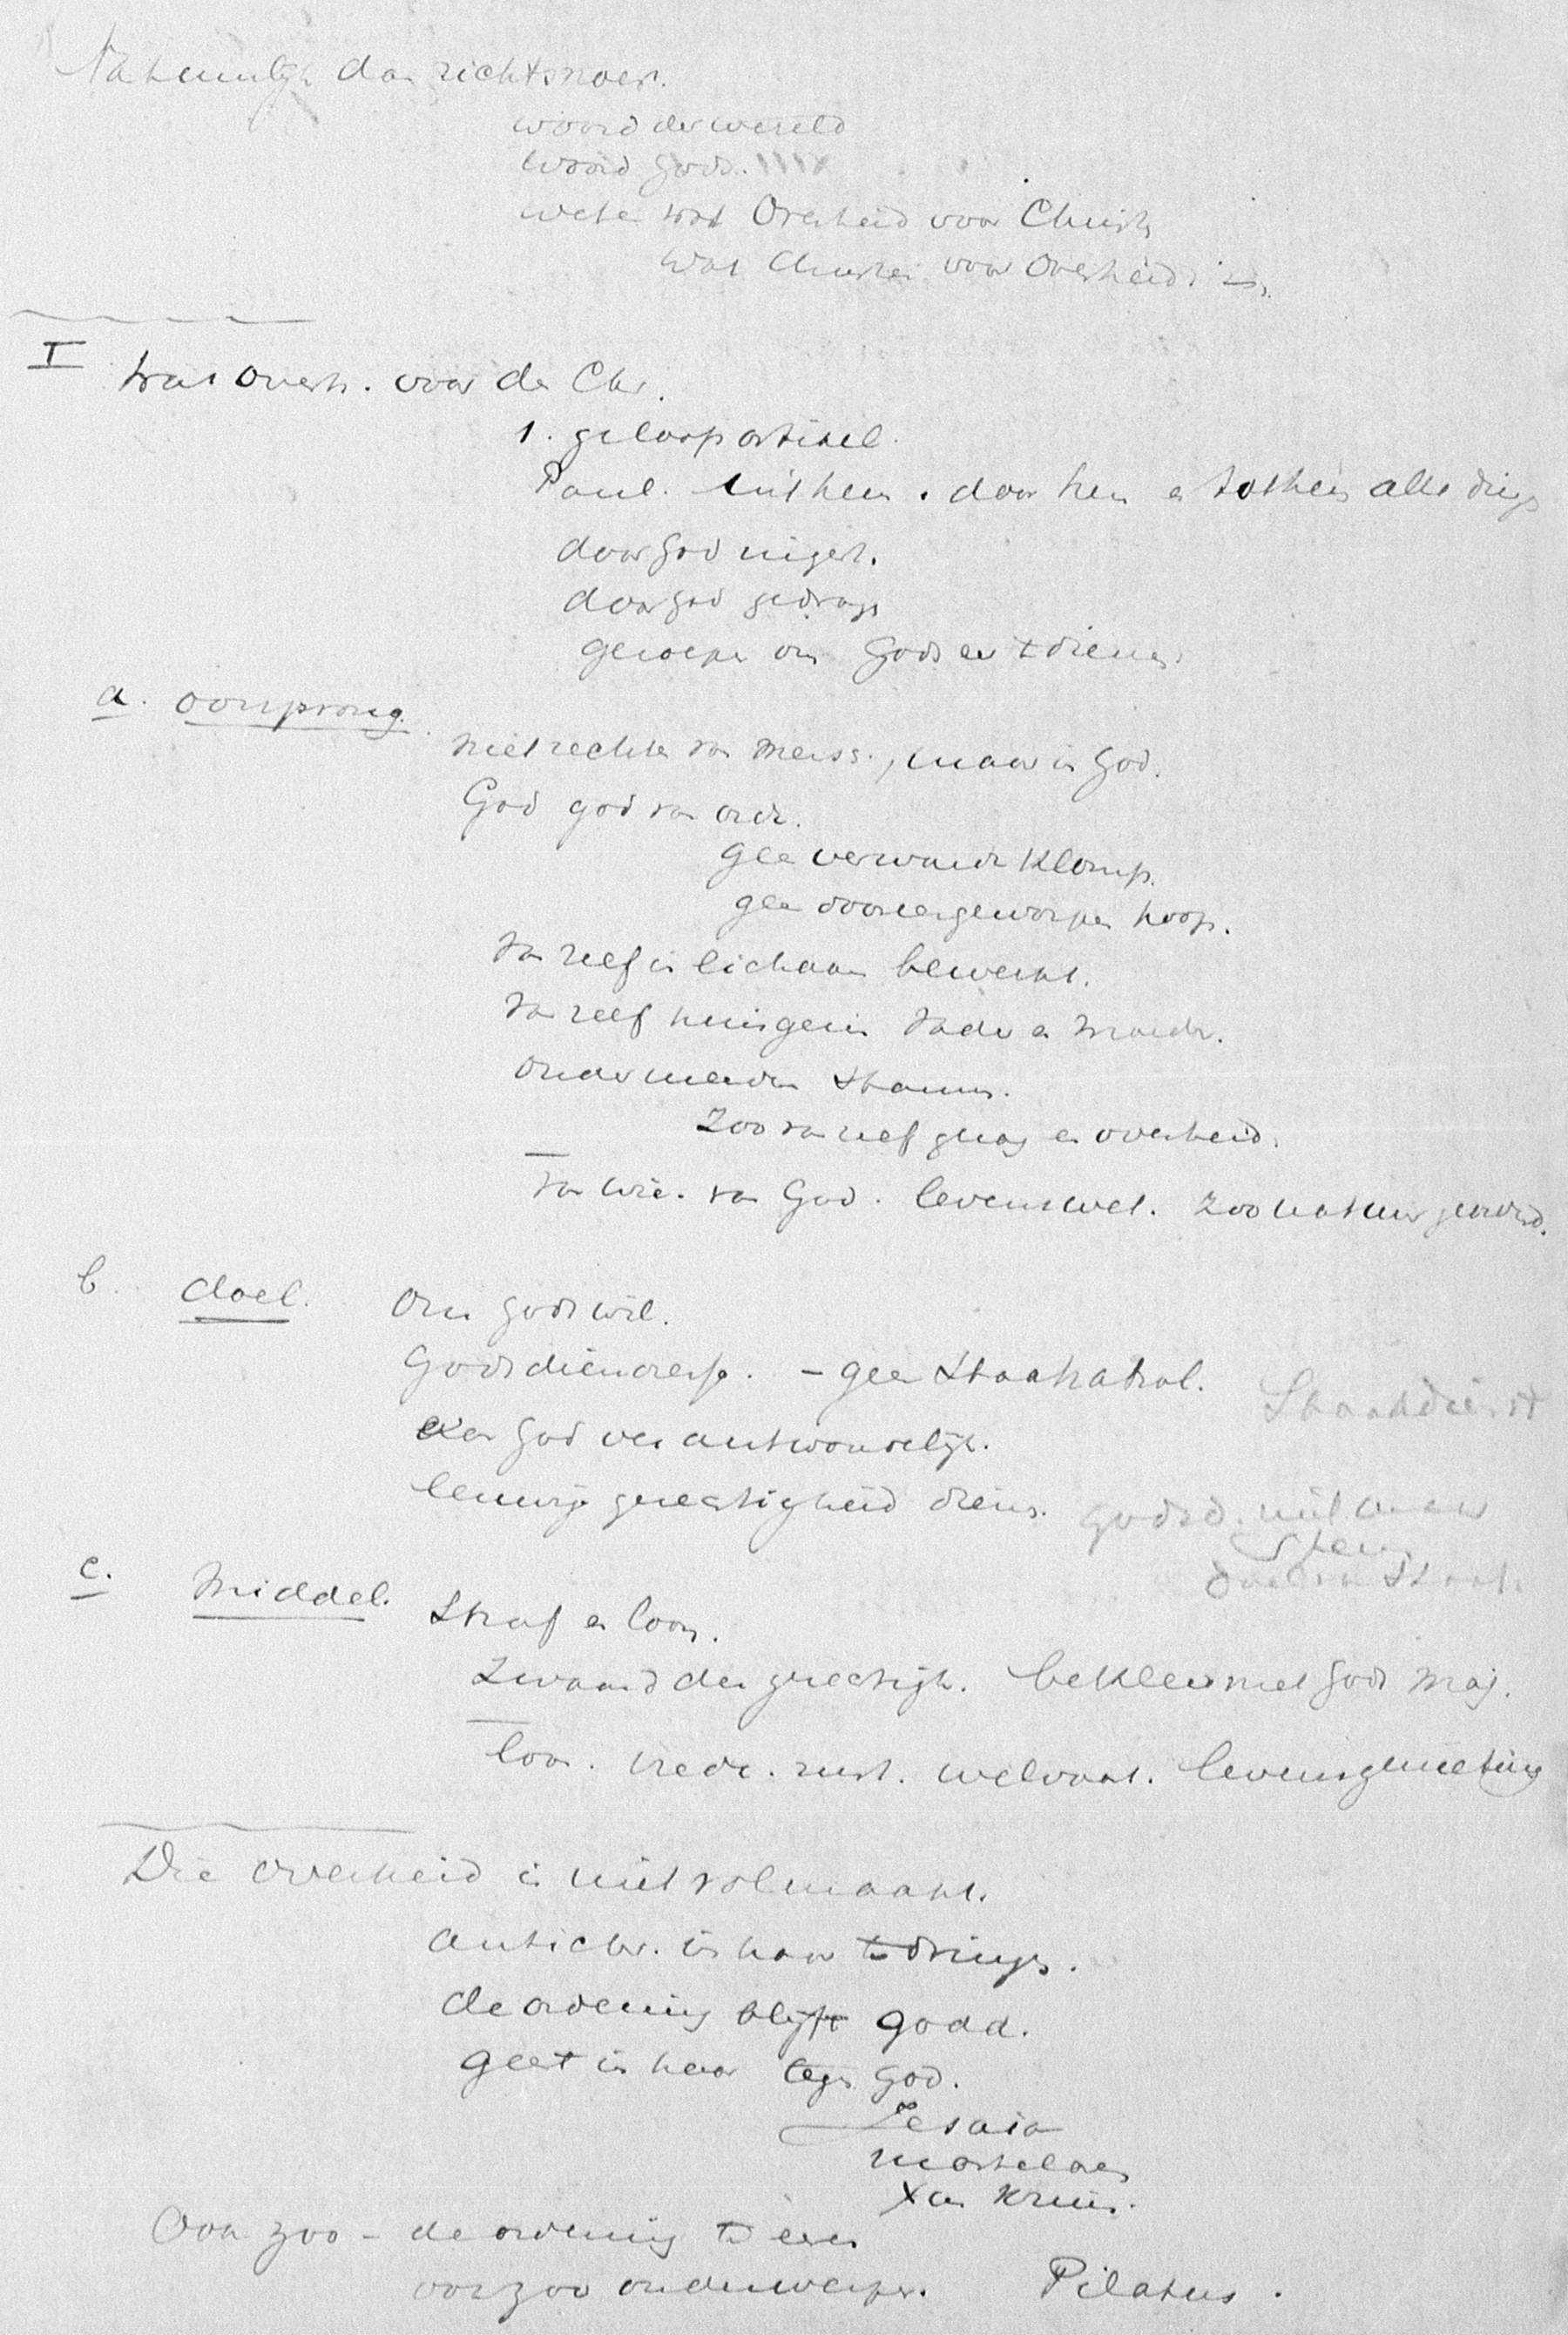 Natuurlijk dan richtsnoer.
woord der wereld
woord Gods.
wete wat Overheid voor Christ
wat Christen voor Overheid is.
I wat overh. voor de Chr.
1. geloofsartikel.
Paul. uit hem. door hem en tot hem alle ding
door God
door God gedrag
geroepen om Gods eer t dienen
a. oorsprong.
niet rechte van mens., maar in God.
God god van orde.
geen verwarde klomp.
geen dooreengeworpen hoop.
van zelf in lichaam bewerkt.
van zelf huisgezin vader en moeder.
onder stammen.
Zoo van zelf gezag en overheid.
van wie. van God. levenswet. Zoo natuur geordend.
b. doel. Om Gods wil.
Gods dienares. - geen Staat
Staatsdienst
aan God verantwoordelijk.
eeuwige gerechtigheid dienen.
Godsd. niet
doel van Staat.
c. middel. Straf en loon.
Zwaard der gerechtigh. bekleed met Gods maj.
loon. vrede. rust. welvaart. levensgenieting
Die overheid is niet volmaakt.
antichr. in haar te dringen.
de ordening blijft goed.
geest in haar tegen God.
Jesaia
martelaren
X aan kruis.
Ook zoo - de ordening te eeren
ook zoo onderwerpen. Pilatus.